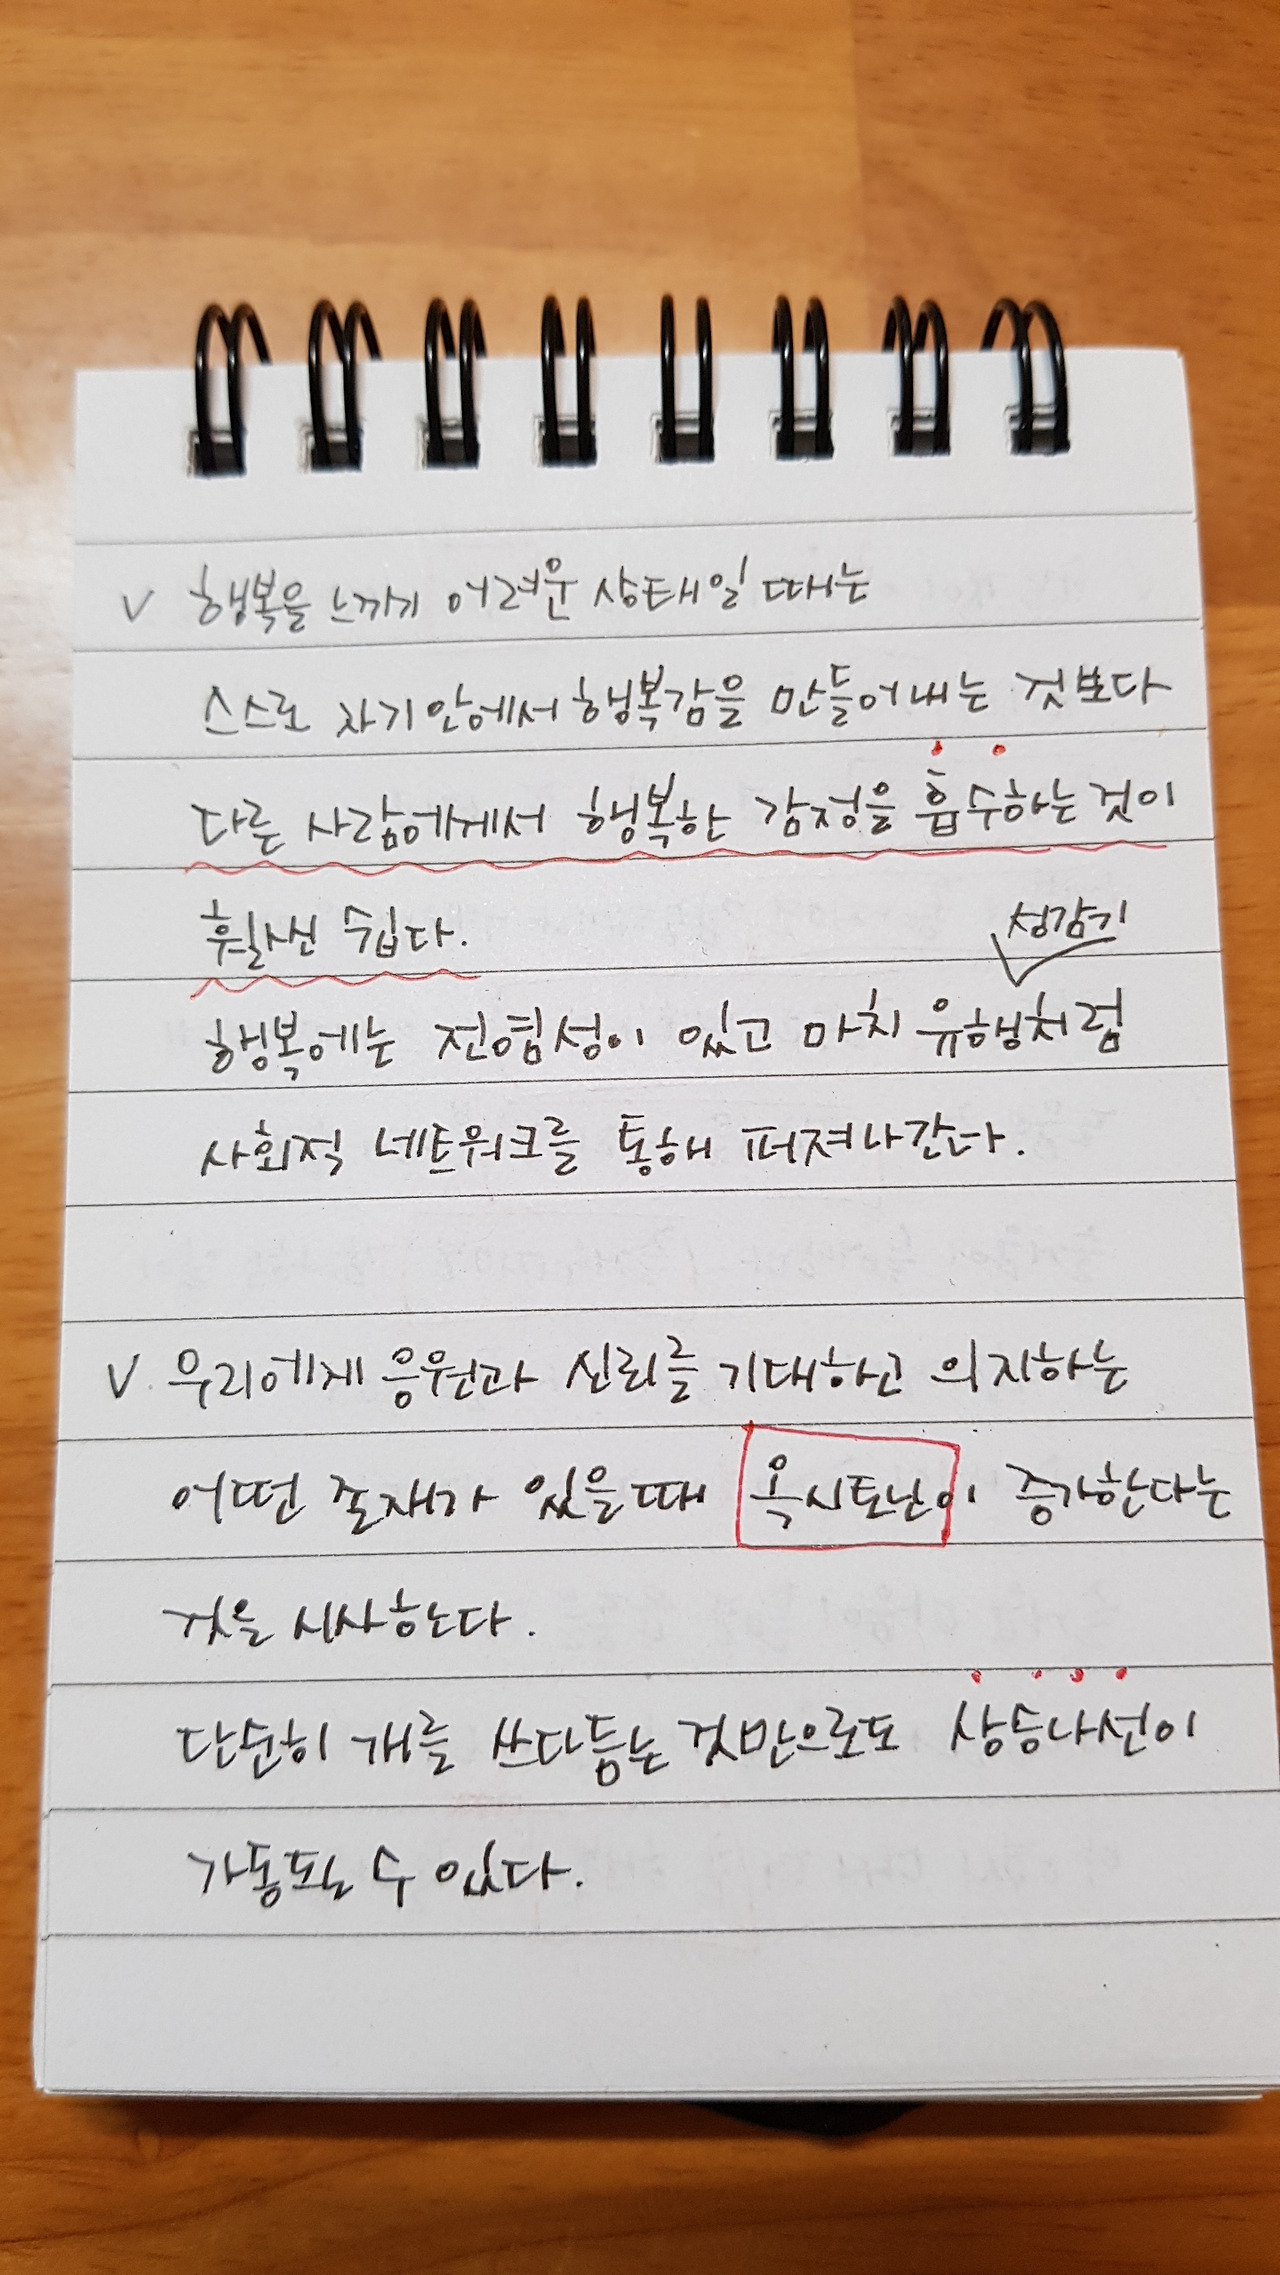 V 행복을 느끼기 어려운 상태일 때는
스스로 자기 안에서 행복감을 만들어 내는 것보다
다른 사람에게서 행복한 감정을 흡수하는 것이
훨씬 쉽다.
성감기
행복에는 전염성이 있고 마치 유행처럼
사회적 네트워크를 통해 퍼져나간다.
V. 우리에게 응원과 신뢰를 기대하고 의지하는
어떤 존재가 있을 때 옥시토닌이 증가한다는
것을 시사한다.
단순히 개를 쓰다듬는 것만으로도 상승나선이
가동될 수 있다.